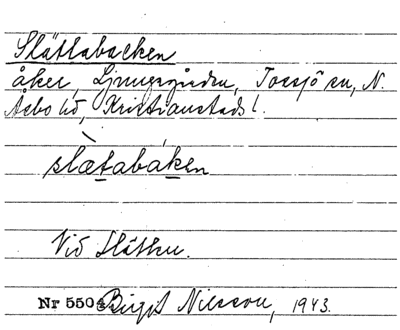 Slättabacken
åker, Ljungsgården, Tossjö sn, N.
Åsbo hd, Kristianstads l.
slætabáken
Vid Slätten.
Nr 5504 Birgit Nilsson, 1943.